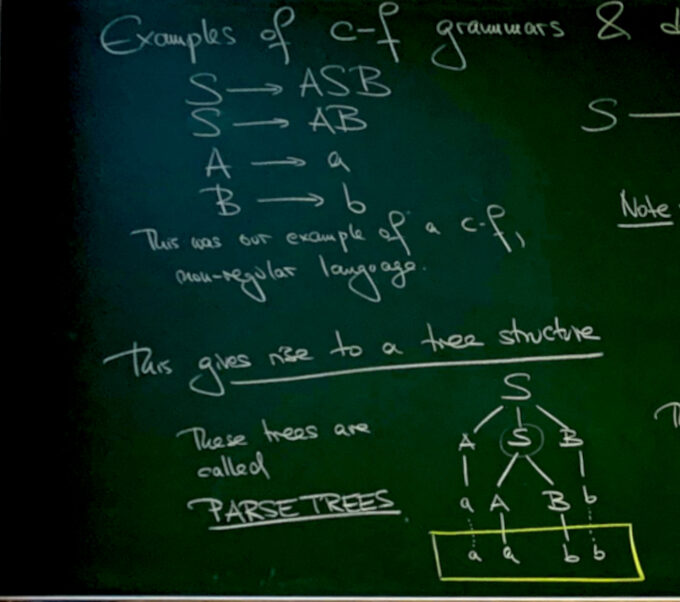 Examples of c-f grammars & d
S → ASB
S → AB
S —
A → a
B → b
Note
This was our example of a c-f,
non-regular language.
This gives rise to a tree structure
S
These trees are
A S B
called
PARSE TREES
a A B b
a a b b